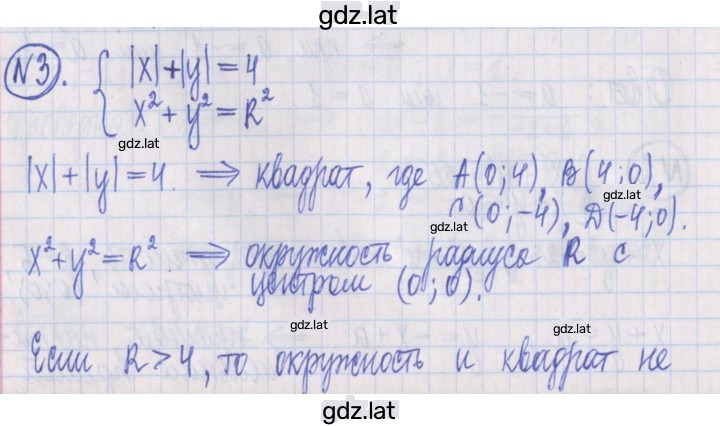 gdz.lat
N3. { |x|+|y|=4
x²+y²=R²
gdz.lat
|x|+|y|=4. ⟹ квадрат, где A(0;4), B(4;0),
gdz.lat
C(0;-4), D(-4;0).
x²+y²=R². ⟹ окружность радиуса R с
gdz.lat
центром (0;0).
gdz.lat
Если R>4, то окружность и квадрат не
gdz.lat